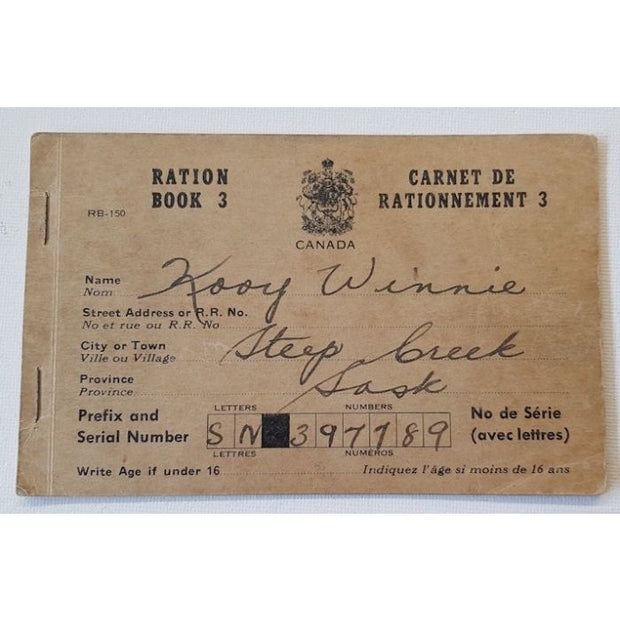 RATION BOOK 3
CARNET DE RATIONNEMENT 3
RB-150
CANADA
Name Kooy Winnie
Nom
Street Address or R.R. No.
No et rue ou R.R. No
City or Town Steep Creek
Ville ou Village
Province Sask
Province
LETTERS NUMBERS
Prefix and Serial Number S N 397789 No de Série (avec lettres)
LETTRES NUMÉROS
Write Age if under 16 Indiquez l'âge si moins de 16 ans